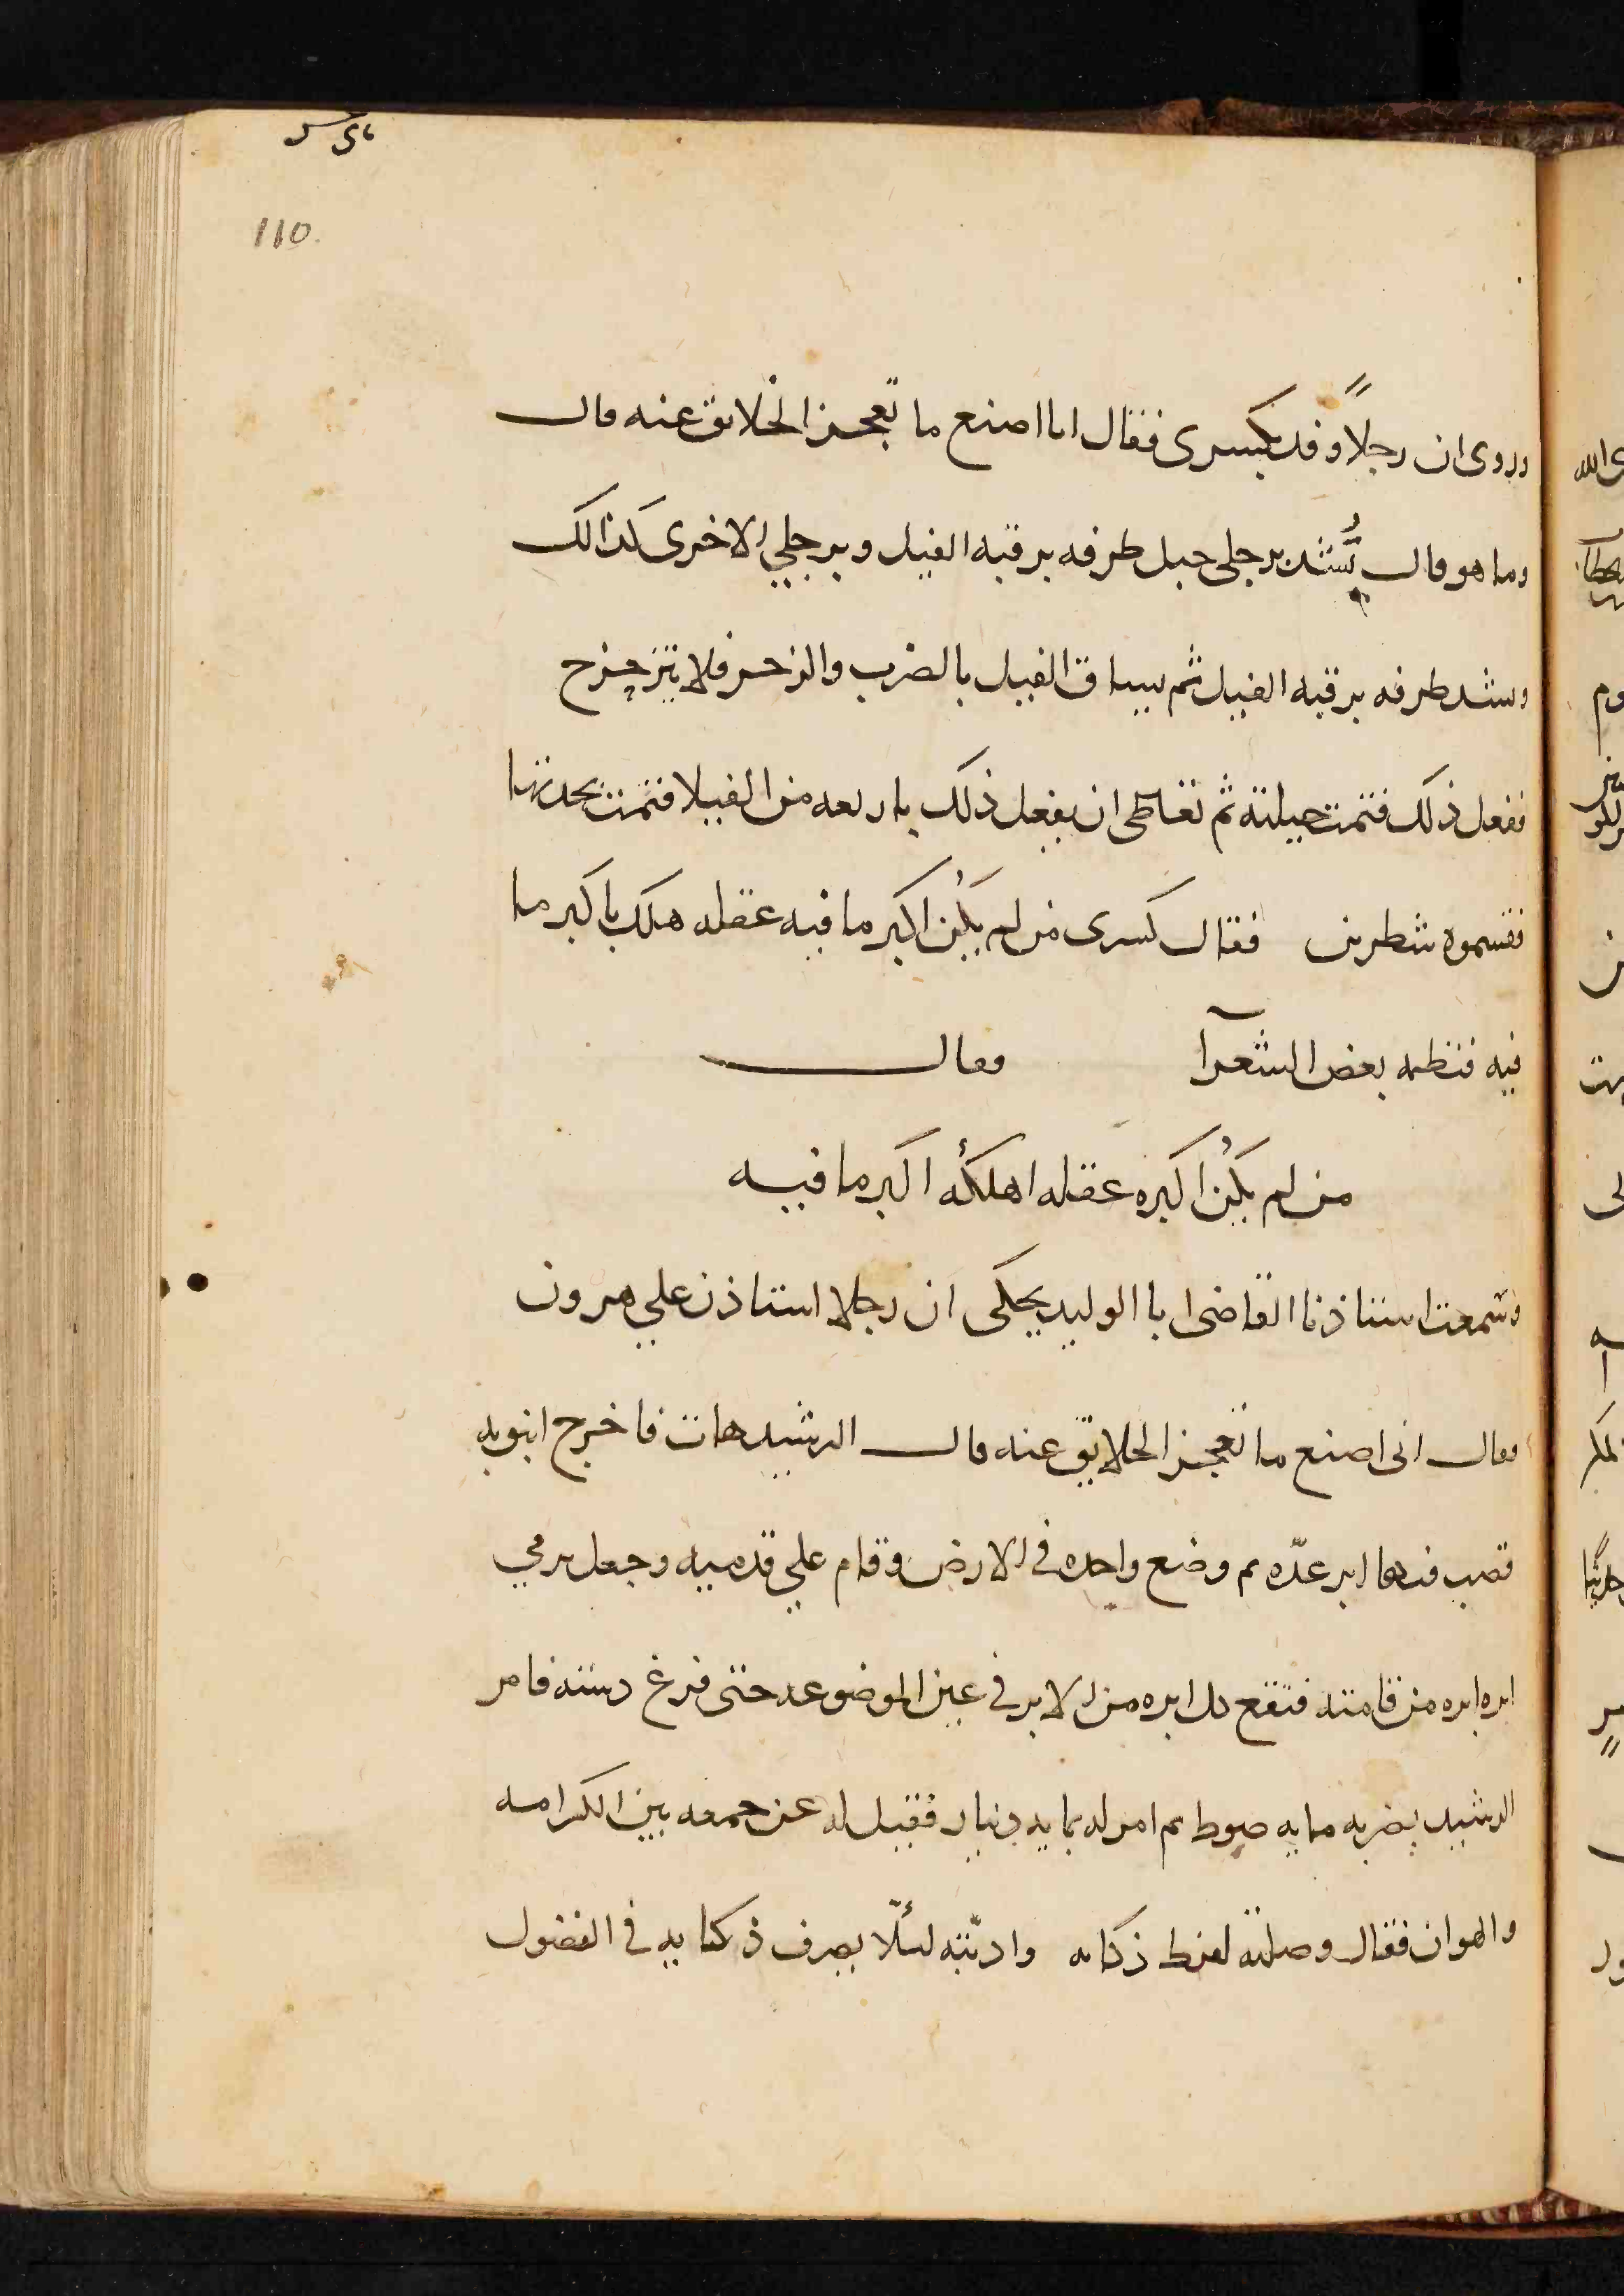 110
وروى ان رجلاً وفد بكسرى فقال انا اصنع ما تعجز الخلايق عنه قال
وما هو قال يُشد برجلي حبل طرفه برقبه الفيل وبرجلي الاخرى كذالك
وشد طرفه برقبه الفيل ثم يساق الفيل بالضرب والزجر فلا يتزحزح
ففعل ذلك فتمت حيلته ثم تعاطى ان يفعل ذلك باربعه من الفيلا فتمت
فقسموه شطرين فقال كسرى من لم يكُن اكبر ما فيه عقله هلك باكبر ما
فيه فنظمه بعض الشعرآ فقال
من لم يكُن اكبره عقله اهلكهُ اكبر ما فيه
وسمعت استاذنا القاضى ابا الوليد يحكى ان رجلا استاذن علي هرون
فقال انى اصنع ما تعجز الخلايق عنه قال الرشيد هات فاخرج انبوبه
قصب فيها ابر عدّه ثم وضع واحده في الارض وقام علي قدميه وجعل يرمي
ابره ابره من قامته فتقع كل ابره من الابر في عين الموضوعه حتى فرغ دسته فامر
الرشيد بضربه مايه صوط ثم امر له بمايه دينار فقيل له عن جمعه بين الكرامه
والهوان فقال وصلته لفرط ذكايه وادبّته لئلّا يصرف ذكايه في الفضول